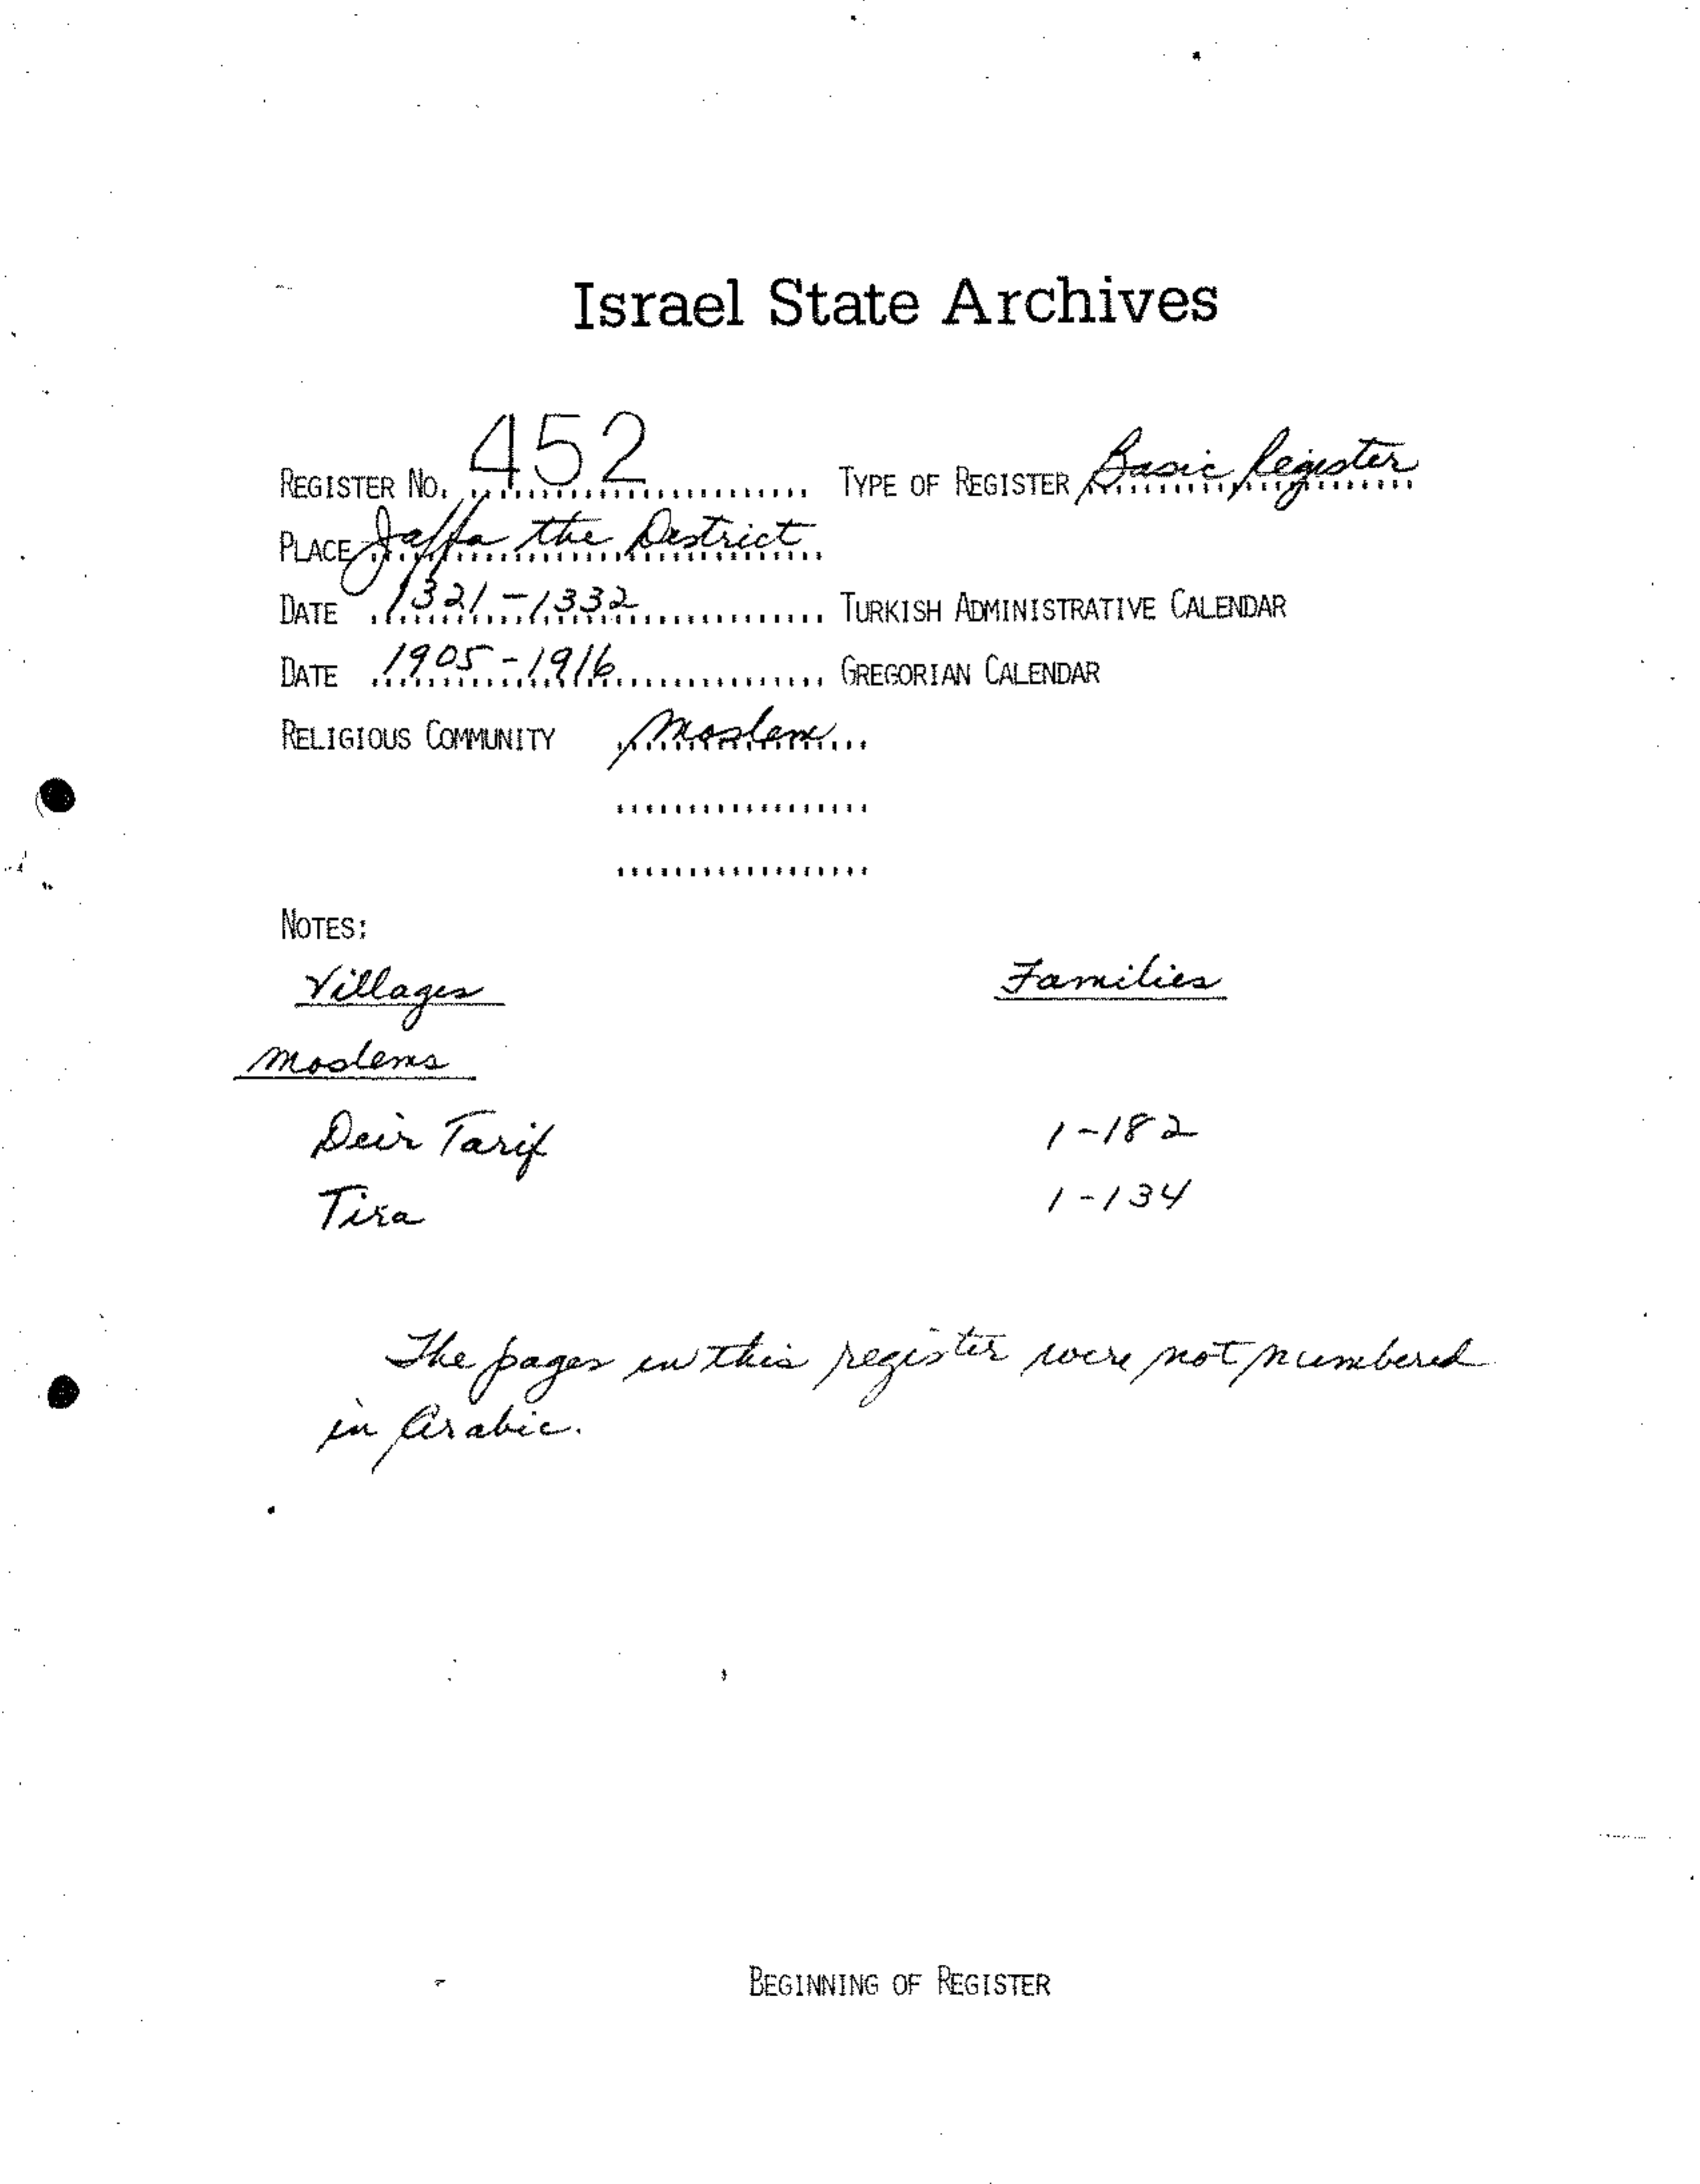 Israel State Archives
REGISTER NO. 452 TYPE OF REGISTER Basic Register
PLACE Jaffa the District
DATE 1321-1332 TURKISH ADMINISTRATIVE CALENDAR
DATE 1905-1916 GREGORIAN CALENDAR
RELIGIOUS COMMUNITY Moslem
NOTES:
Villages Families
Moslems
Deir Tarif 1-182
Tira 1-134
The pages in this register were not numbered
in Arabic.
BEGINNING OF REGISTER